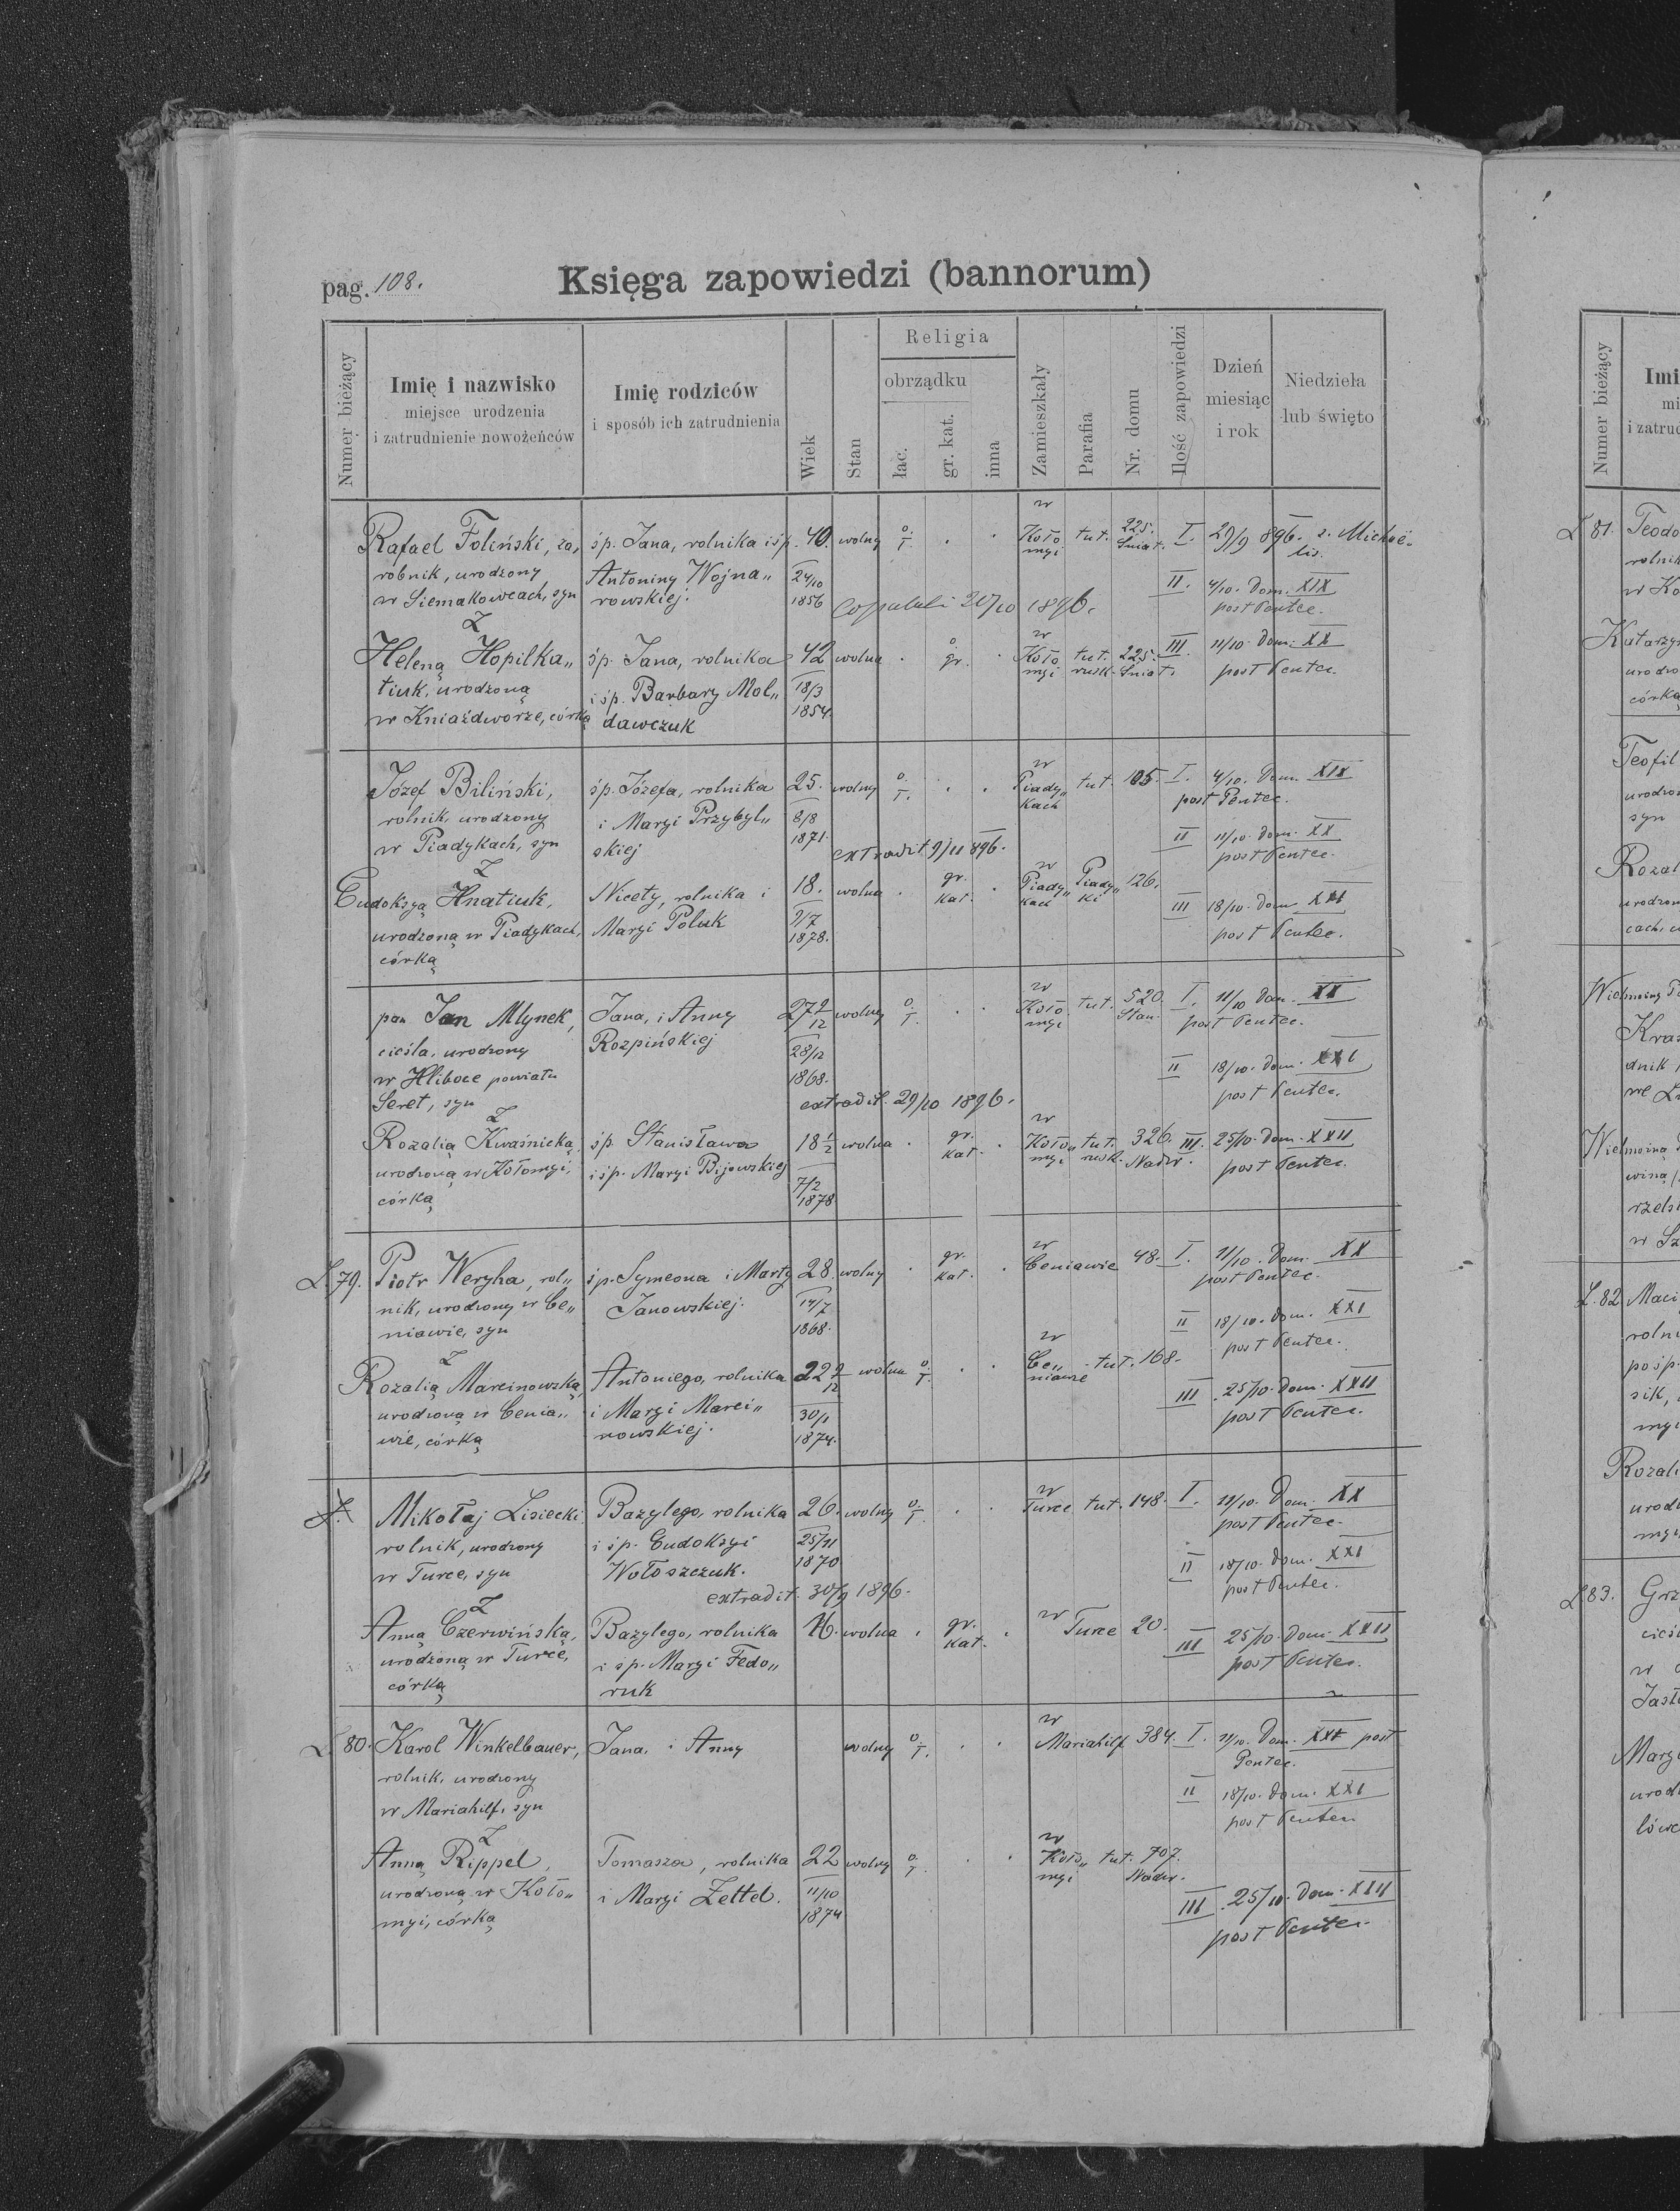 pag. 108.
Księga zapowiedzi (bannorum)
Numer bieżący
Imię i nazwisko
miejsce urodzenia
i zatrudnienie nowożeńców
Imię rodziców
i sposób ich zatrudnienia
Wiek
Stan
Religia
obrządku
łac.
gr. kat.
inna
Zamieszkały
Parafia
Nr. domu
Ilość zapowiedzi
Dzień
miesiąc
i rok
Niedziela
lub święto
Rafael Foliński, za,
robnik, urodzony
w Siemakowcach, syn
śp. Jana, rolnika i śp.
Antoniny Wojna„
rowskiej.
40.
24/10
1856
wolny
o.
ł.
w
Koło
myi
tut.
225.
Śniat.
I. 29/9 896. s. Michaë-
lis.
II. 4/10. Dom. XIX
post Pentec.
copulati 20/10 1896.
Z
Heleną Hopilka„
tiuk, urodzoną
w Kniaźdworze, córką
śp. Jana, rolnika
i śp. Barbary Moł„
dawczuk
42
18/3
1854.
wolna
o.
gr.
w
Koło
myi
tut.
rusk.
225.
Śniat.
III 11/10. Dom. XX
post Pentec.
Józef Biliński,
rolnik, urodzony
w Piadykach, syn
śp. Józefa, rolnika
i Maryi Przybyl„
skiej
25.
8/8
1871.
wolny
o.
ł.
w
Piady„
kach
tut. 105.
I. 4/10. Dom. XIX
post Pentec.
II 11/10. Dom. XX
post Pentec.
extradit 9/11 896.
Z
Eudokszyą Hnatiuk,
urodzoną w Piadykach,
córką
Nicety, rolnika i
Maryi Poluk
18.
9/7
1878.
wolna
gr.
kat.
w
Piady„
kach
Piady„
ki
126.
III 18/10. Dom XXI
post Pentec.
pan Jan Mlynek,
cieśla, urodzony
w Hliboce powiatu
Seret, syn
Jana, i Anny
Rozpińskiej
27 9/12
28/12
1868.
wolny
o.
ł.
w
Koło
myi
tut.
520.
Stan.
I. 11/10 Dom. XX
post Pentec.
II 18/10. Dom. XXI
post Pentec.
extradit. 29/10 1896.
Z
Rozalią Kwaśnicką,
urodzoną w Kołomyi,
córką
śp. Stanisława
i śp. Maryi Bijowskiej
18 1/2
7/2
1878
wolna
gr.
kat.
w
Koło„
myi
tut.
rusk.
326.
Nadw.
III. 25/10. Dom. XXII
post Pentec.
L. 79.
Piotr Weryha, rol„
nik, urodzony w Ce„
niawie, syn
śp. Symeona i Marty
Janowskiej.
28.
14/7
1868.
wolny
gr.
kat.
w
Ceniawie 48.
I. 11/10. Dom. XX
post Pentec.
II 18/10. Dom. XXI
post Pentec.
Z
Rozalią Marcinowską,
urodzoną w Cenia„
wie, córką
Antoniego, rolnika
i Maryi Marci„
nowskiej.
30/1
1874.
wolna
o.
ł.
w
Ce„
niawie
tut. 168.
III 25/10. Dom. XXII
post Pentec.
Mikołaj Lisiecki
rolnik, urodzony
w Turce, syn
Bazylego, rolnika
i śp. Eudokszyi
Wołoszczuk.
26.
25/11
1870
wolny
o.
ł.
w
Turce tut. 148.
I. 11/10. Dom. XX
post Pentec.
II 18/10. Dom. XXI
post Pentec.
extradit. 30/9 1896.
Z
Anną Czerwińską,
urodzoną w Turce,
córką
Bazylego, rolnika
i śp. Maryi Fedo„
ruk
16. wolna
gr.
kat.
w Turce 20.
III 25/10. Dom. XXII
post Pentec.
L. 80.
Karol Winkelbauer,
rolnik, urodzony
w Mariahilf, syn
Jana, i Anny
wolny
o.
ł.
w
Mariahilf 384.
I. 11/10. Dom. XX post
Pentec.
II 18/10. Dom. XXI
post Pentec
Z
Anną Rippel,
urodzoną w Koło„
myi, córką
Tomasza, rolnika
i Maryi Zettel.
22
11/10
1874
wolny
o.
ł.
w
Koło„
myi
tut. 707.
Nadw.
III 25/10. Dom. XXII
post Pentec.
Numer bieżący
Imi
mi
i zatrud
L 81.
Teodo
rolnik
w Ko
Katarzy
urodzo
córką
Teofil
urodzo
syn
Rozal
urodzon
cach, c
Kras
dnik
L. 82
Maci
rolni
posp.
sik,
myi
Rozali
urodz
myi
L 83.
Grz
cieśl
w
Jasł
Mary
urodz
lówc